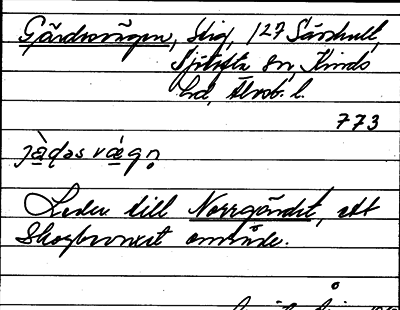 Gärdsvägen, stig, 127 Särshult,
Sjötofta sn, Kinds
hd, Älvsb. l.
773
jàḍəs væ̀gɒ
Leder till Norrgärdet, ett
Skogbevuxet område.